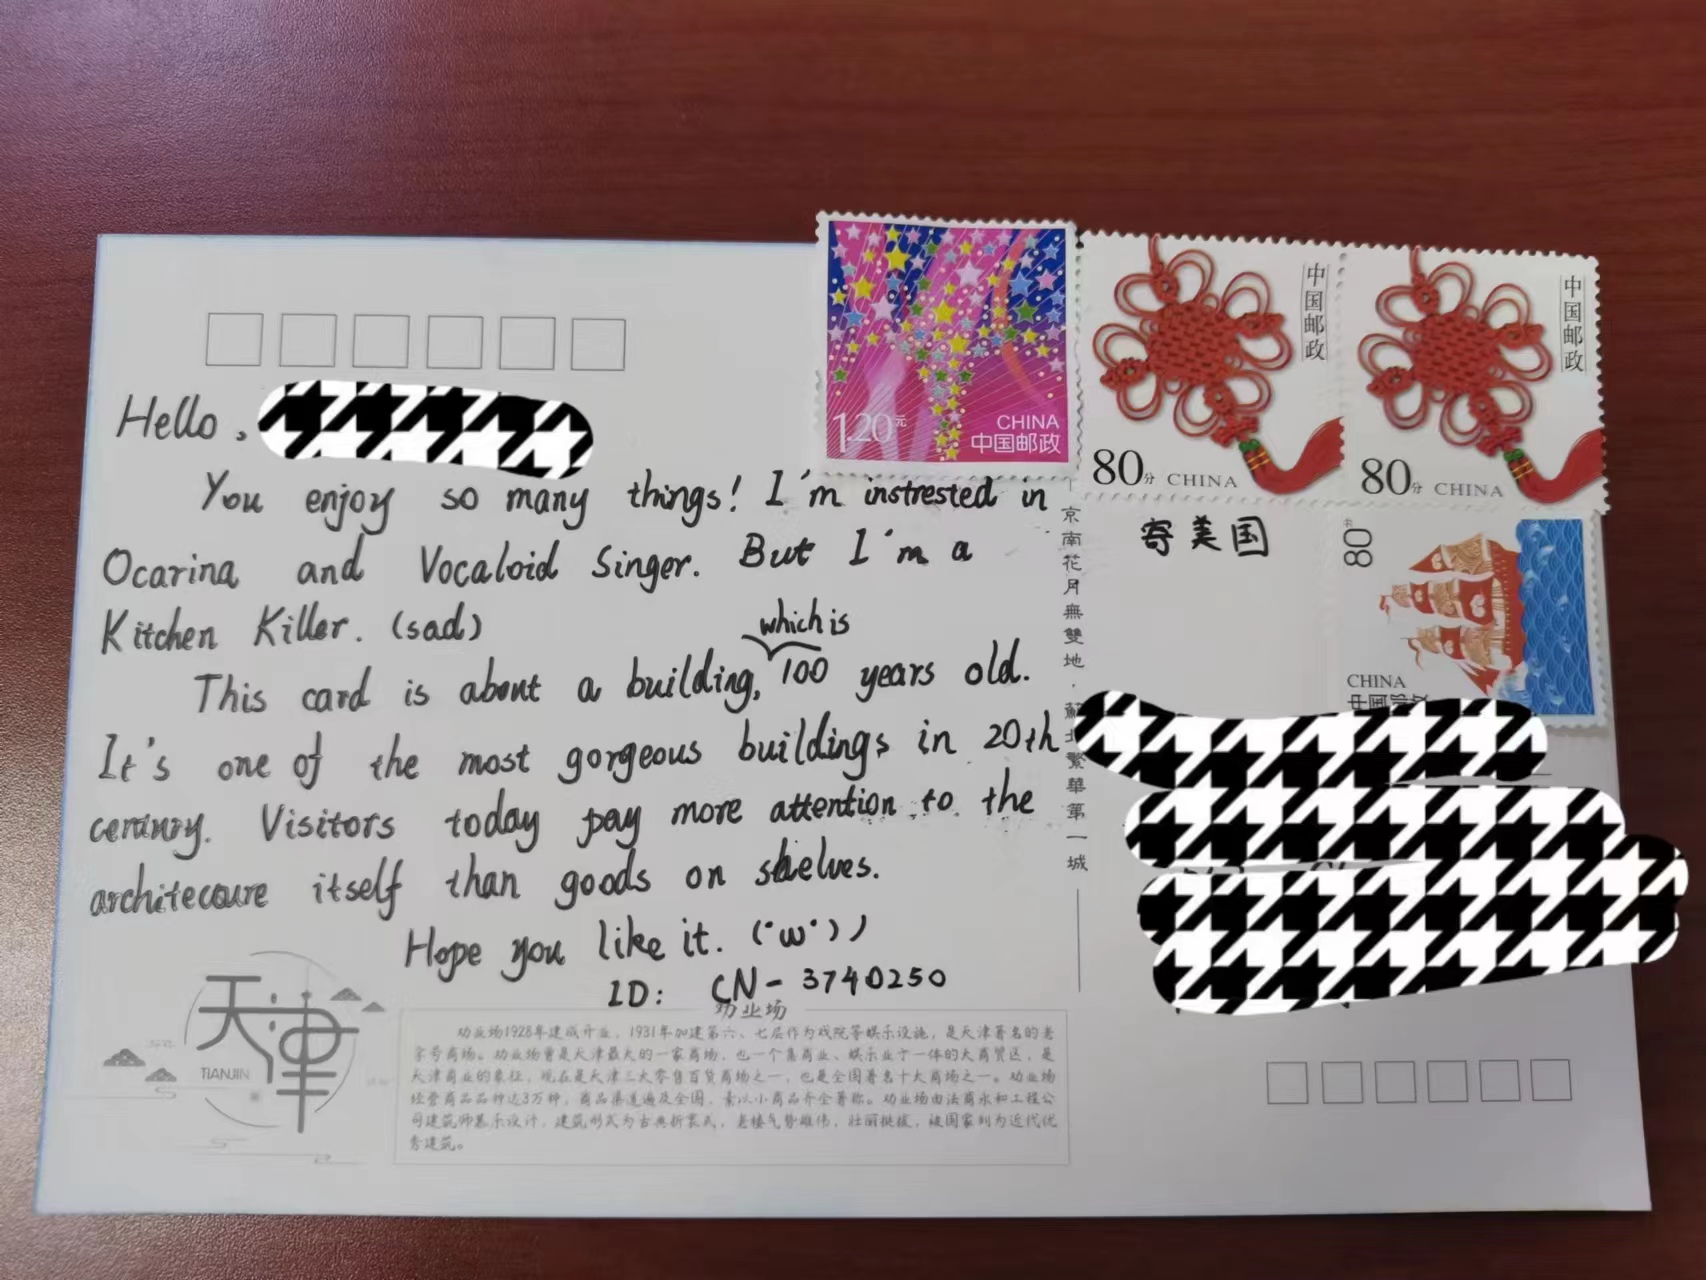 1.20元
CHINA
中国邮政
中国邮政
80分 CHINA
中国邮政
80分 CHINA
80分
CHINA
寄美国
Hello,
You enjoy so many things! I'm instrested in
Ocarina and Vocaloid Singer. But I'm a
Kitchen Killer. (sad)
which is
This card is about a building, 100 years old.
It's one of the most gorgeous buildings in 20th
centnry. Visitors today pay more attention to the
architecoure itself than goods on shelves.
Hope you like it. (·ω·))
ID: CN-3740250
京南花月無雙地·薊北繁華第一城
天津
TIANJIN
劝业场
劝业场1928年建成开业，1931年加建第六、七层作为戏院等娱乐设施，是天津著名的老
字号商场。劝业场曾是天津最大的一家商场，也一个集商业、娱乐业于一体的大商贸区，是
天津商业的象征，现在是天津三大零售百货商场之一，也是全国著名十大商场之一。劝业场
经营商品品种达3万种，商品渠道遍及全国，素以小商品齐全著称。劝业场由法商永和工程公
司建筑师慕乐设计，建筑形式为古典折衷式，老楼气势雄伟，壮丽挺拔，被国家列为近代优
秀建筑。